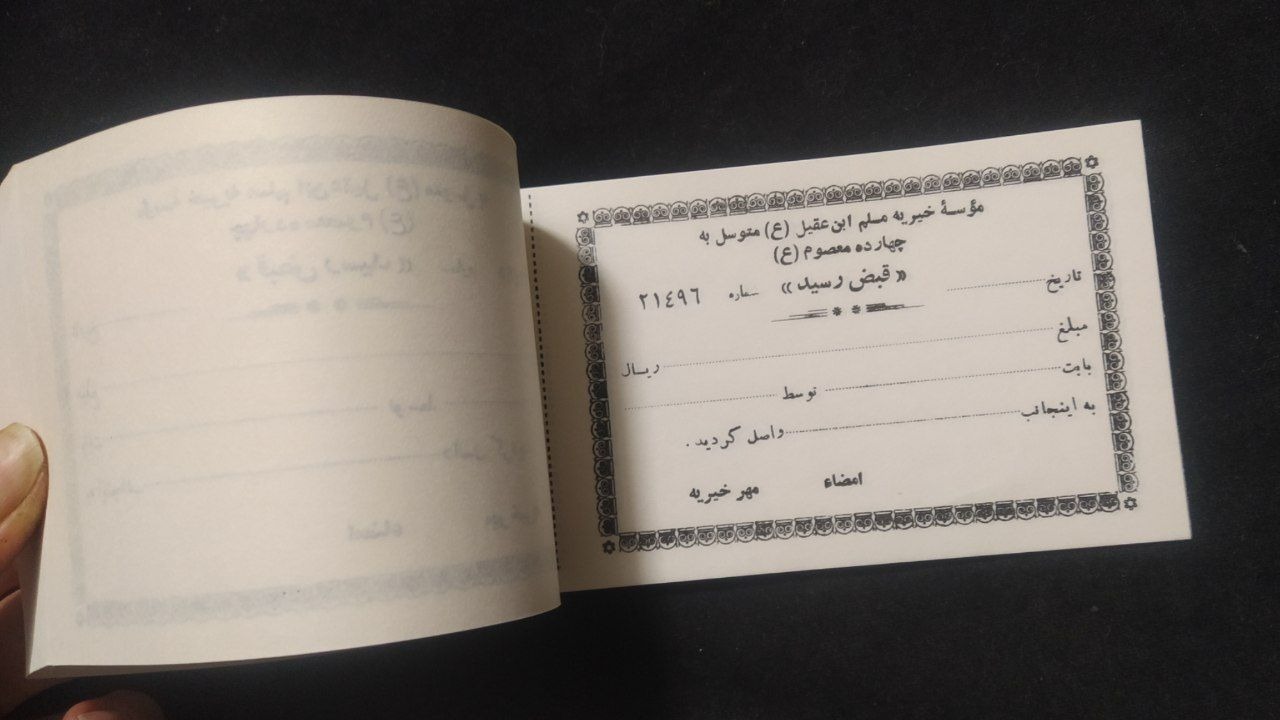 مؤسسهٔ خیریه مسلم ابن عقیل (ع) متوسل به
چهارده معصوم (ع)
« قبض رسید »
تاریخ شماره ٢١٤٩٦
مبلغ ریال
بابت توسط
به اینجانب واصل گردید .
امضاء مهر خیریه